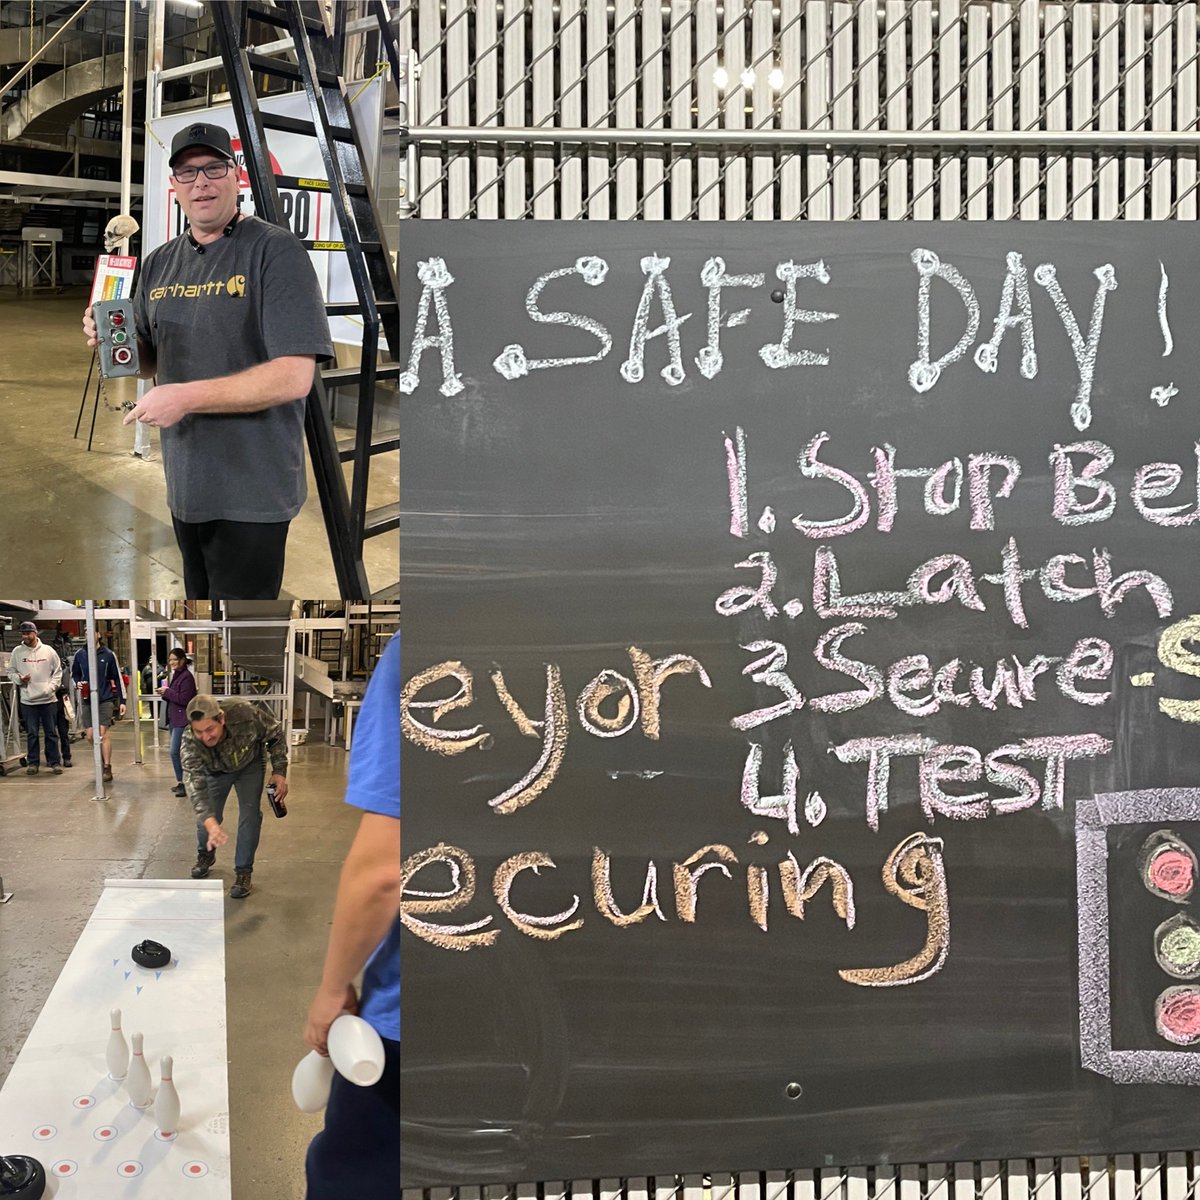 carhartt
FACE LADDER
A SAFE DAY!
1. Stop Bel
2. Latch
3. Secure - S
4. TEST
eyor
ecuring